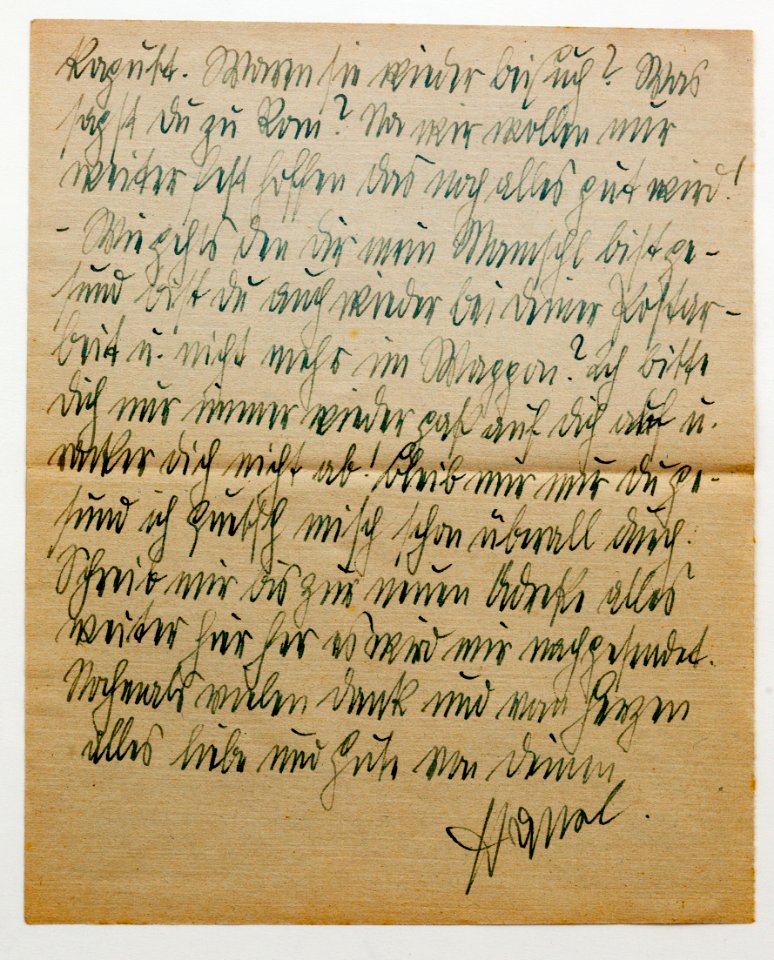 kaputt. Waren sie wieder bei Euch? Was
sagst du zu Rom? Na wir wollen nur
weiter fest hoffen das noch alles gut wird!
- Wie gehts den dir mein Mamschl bist ge-
sund bist du auch wieder bei deiner Postar-
beit u. nicht mehr im Waggon? Ich bitte
dich nur immer wieder paß auf dich auf u.
racker dich nicht ab! Bleib mir nur du ge-
sund ich quetsch misch schon überall durch.
Schreib mir bis zur neuen Adreße alles
weiter hier her es wird mir nachgesendet.
Nochmals vielen Dank und von Herzen
alles liebe und Gute von deinem